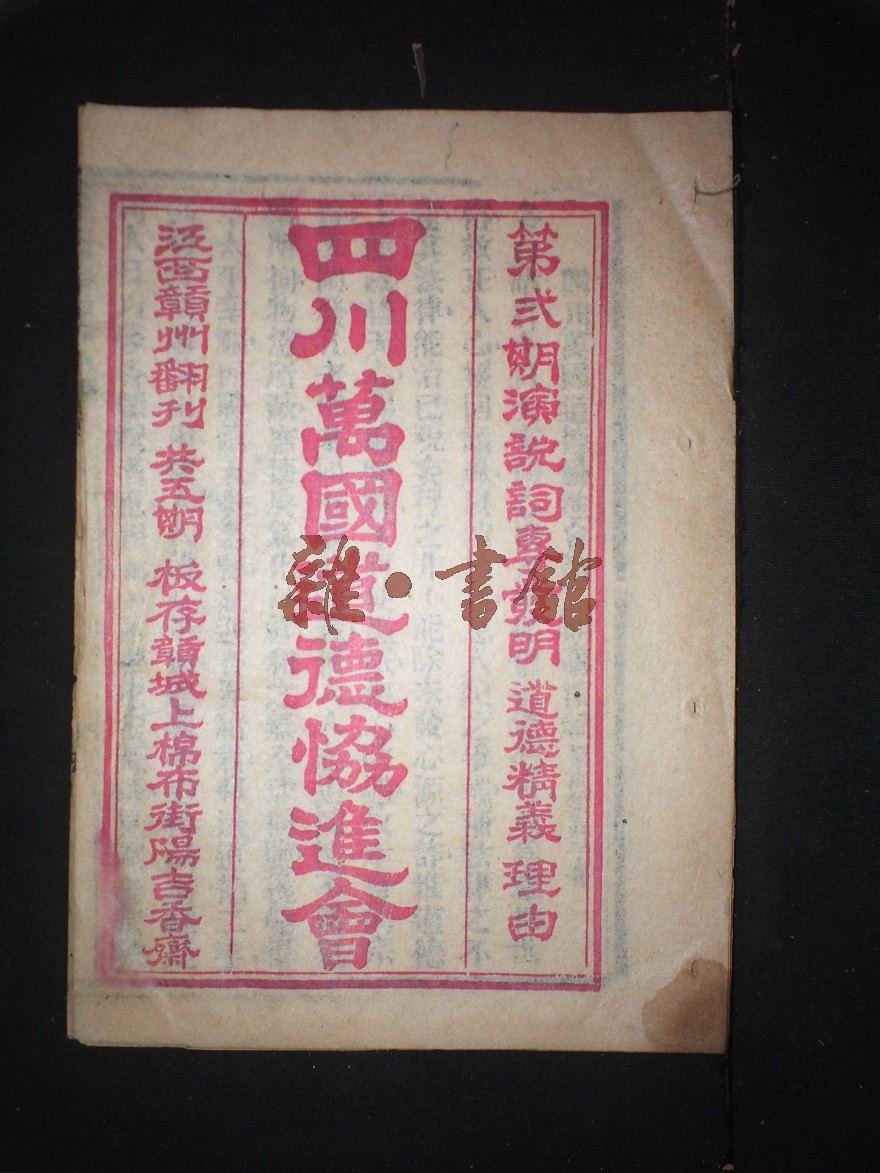 第弍期演說詞專發明 道德精義 理由
四川萬國道德協進會
江西贛州翻刊 共五期 板存贛城上棉布街陽吉香齋
雜·書館